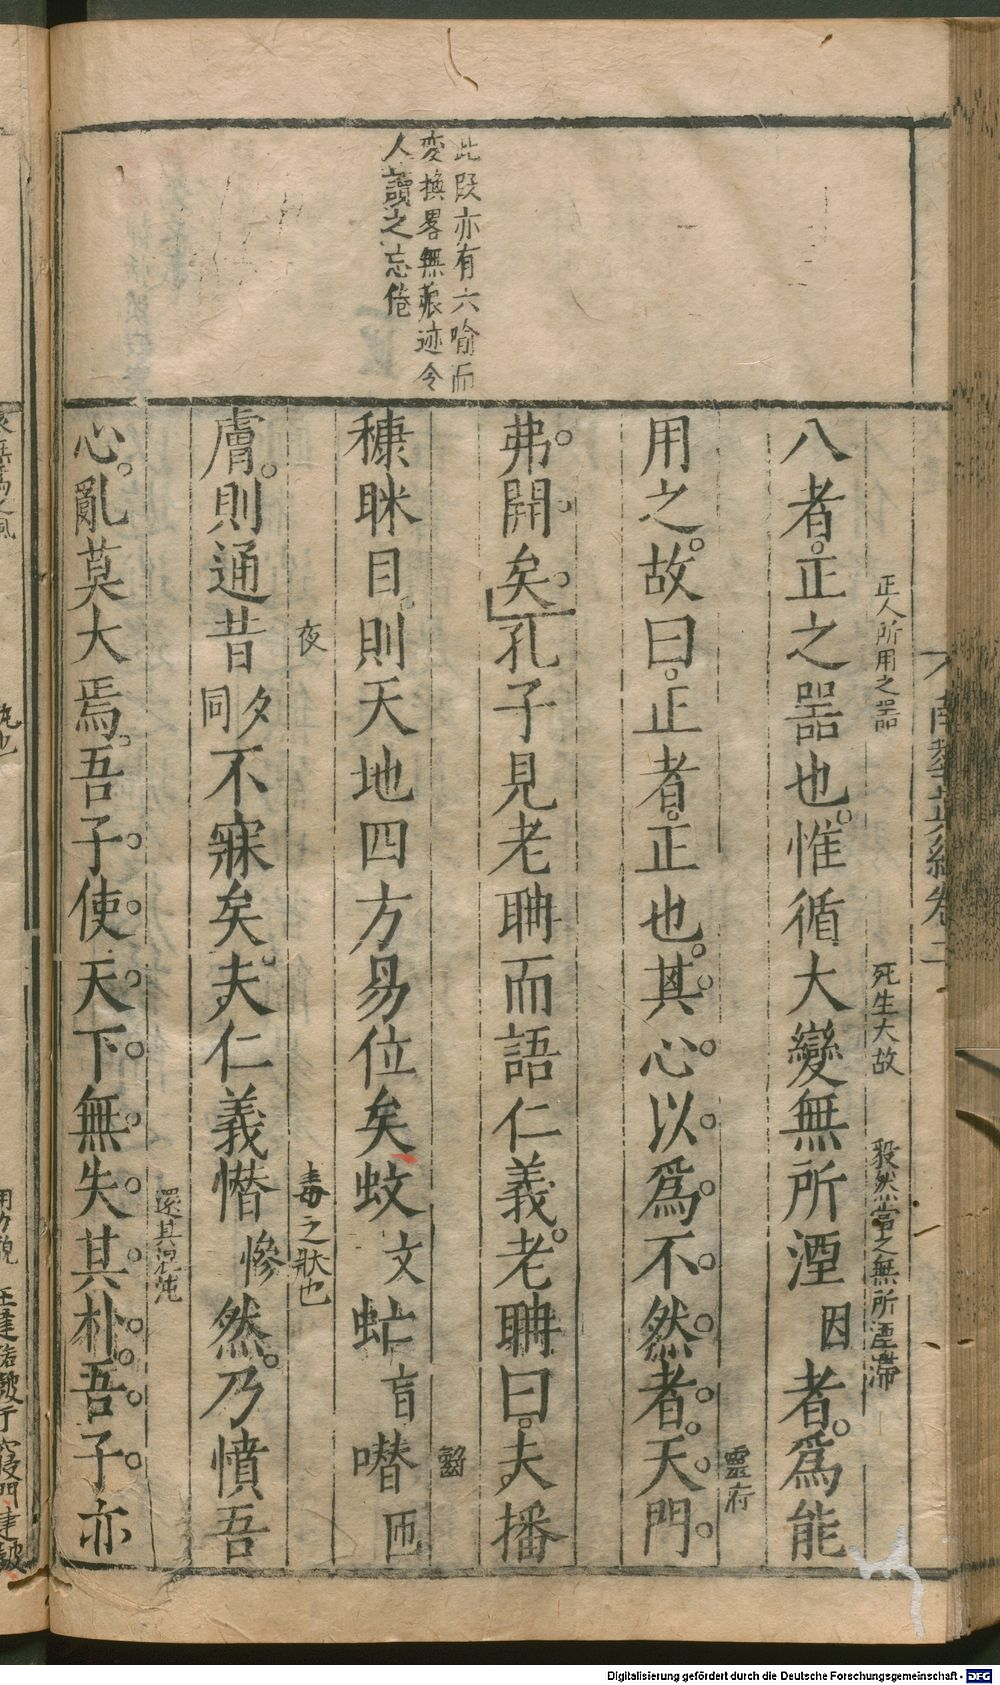 此段亦有六喻而
変換畧無痕迹令
人讀之忘倦
南華真經卷二
正人所用之噐
死生大故
毅然當之無所湮滯
八者正之噐也惟循大變無所湮因者爲能
靈府
用之故曰正者正也其心以爲不然者天門
弗開矣孔子見老聃而語仁義老聃曰夫播
齧
穅眯目則天地四方易位矣蚊文虻盲噆匝
夜
毒之狀也
膚則通昔夕同不寐矣夫仁義憯慘然乃憤吾
還其混沌
心亂莫大焉吾子使天下無失其朴吾子亦
Digitalisierung gefördert durch die Deutsche Forschungsgemeinschaft - DFG